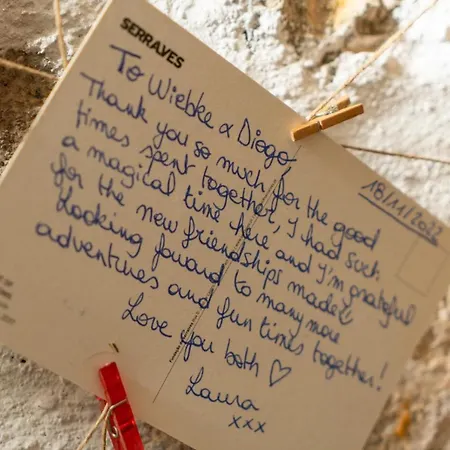 SERRALVES
To Wiebke & Diogo,
Thank you so much for the good
times spent together, I had such
a magical time here and I'm grateful
for the new friendships made♡
Looking foward to many more
adventures and fun times together!
Love you both ♡
Laura
xxx
18/11/2022